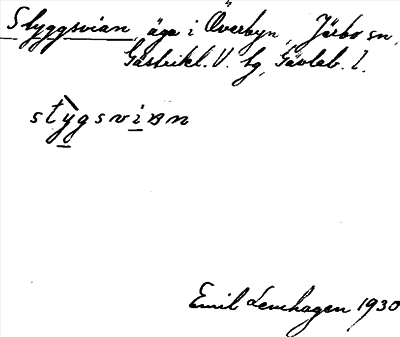 Styggsvian, äga i Överbyn, Järbo sn,
Gästrikl. V. hg, Gävleb. l.
stỳgsvian
Emil Lenhagen 1930